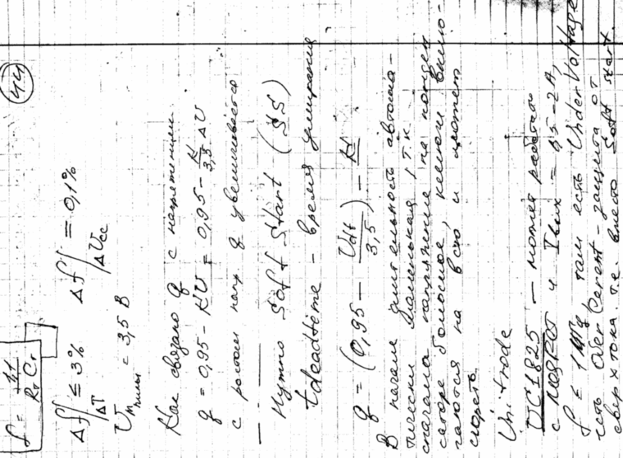 44
f = 1,1 / R_T C_T
Δf/ΔT ≤ 3%   Δf/ΔVcc = 0,1%
= 3,5 В
Как связано q с напряжением
q = 0,95 - KU = 0,95 - K/3,5 ΔU
с ростом напр. q увеличивается
Нужно Soft Start (SS)
tdeadtime - время умирания
q = (0,95 - Vdt/3,5) - K
В начале длительность автома-
тически маленькая, т.к.
сначала напряжение на конден-
саторе большое, ключи вклю-
чаются на всю и может
сгореть
Unitrode
UC1825 — может работать
с MOSFET и Iвых = 0,5-2А,
f ≤ 1МГц там есть Under Voltage
есть Over Current - защита от
сверхтока т.е. вместо Soft start.